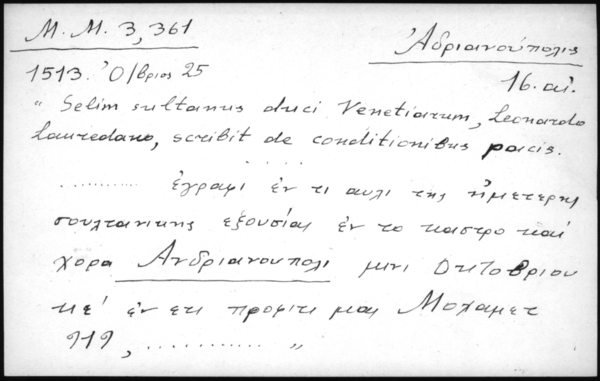 Μ. Μ. 3, 361
Ἀδριανούπολις
1513. Ὀ/βριος 25
16. αἰ.
" Selim sultanus duci Venetiarum, Leonardo
Lauredano, scribit de conditionibus pacis.
. . . . .
............ ἐγραφι ἐν τι αυλι της ἡμετερης
σουλτανικης εξουσίας ἐν το καστρο καί
χορα Ανδριανουπολι μινι Οκτοβριου
κε' ἐν ετι προφιτι μας Μοχαμετ
919, ............ "